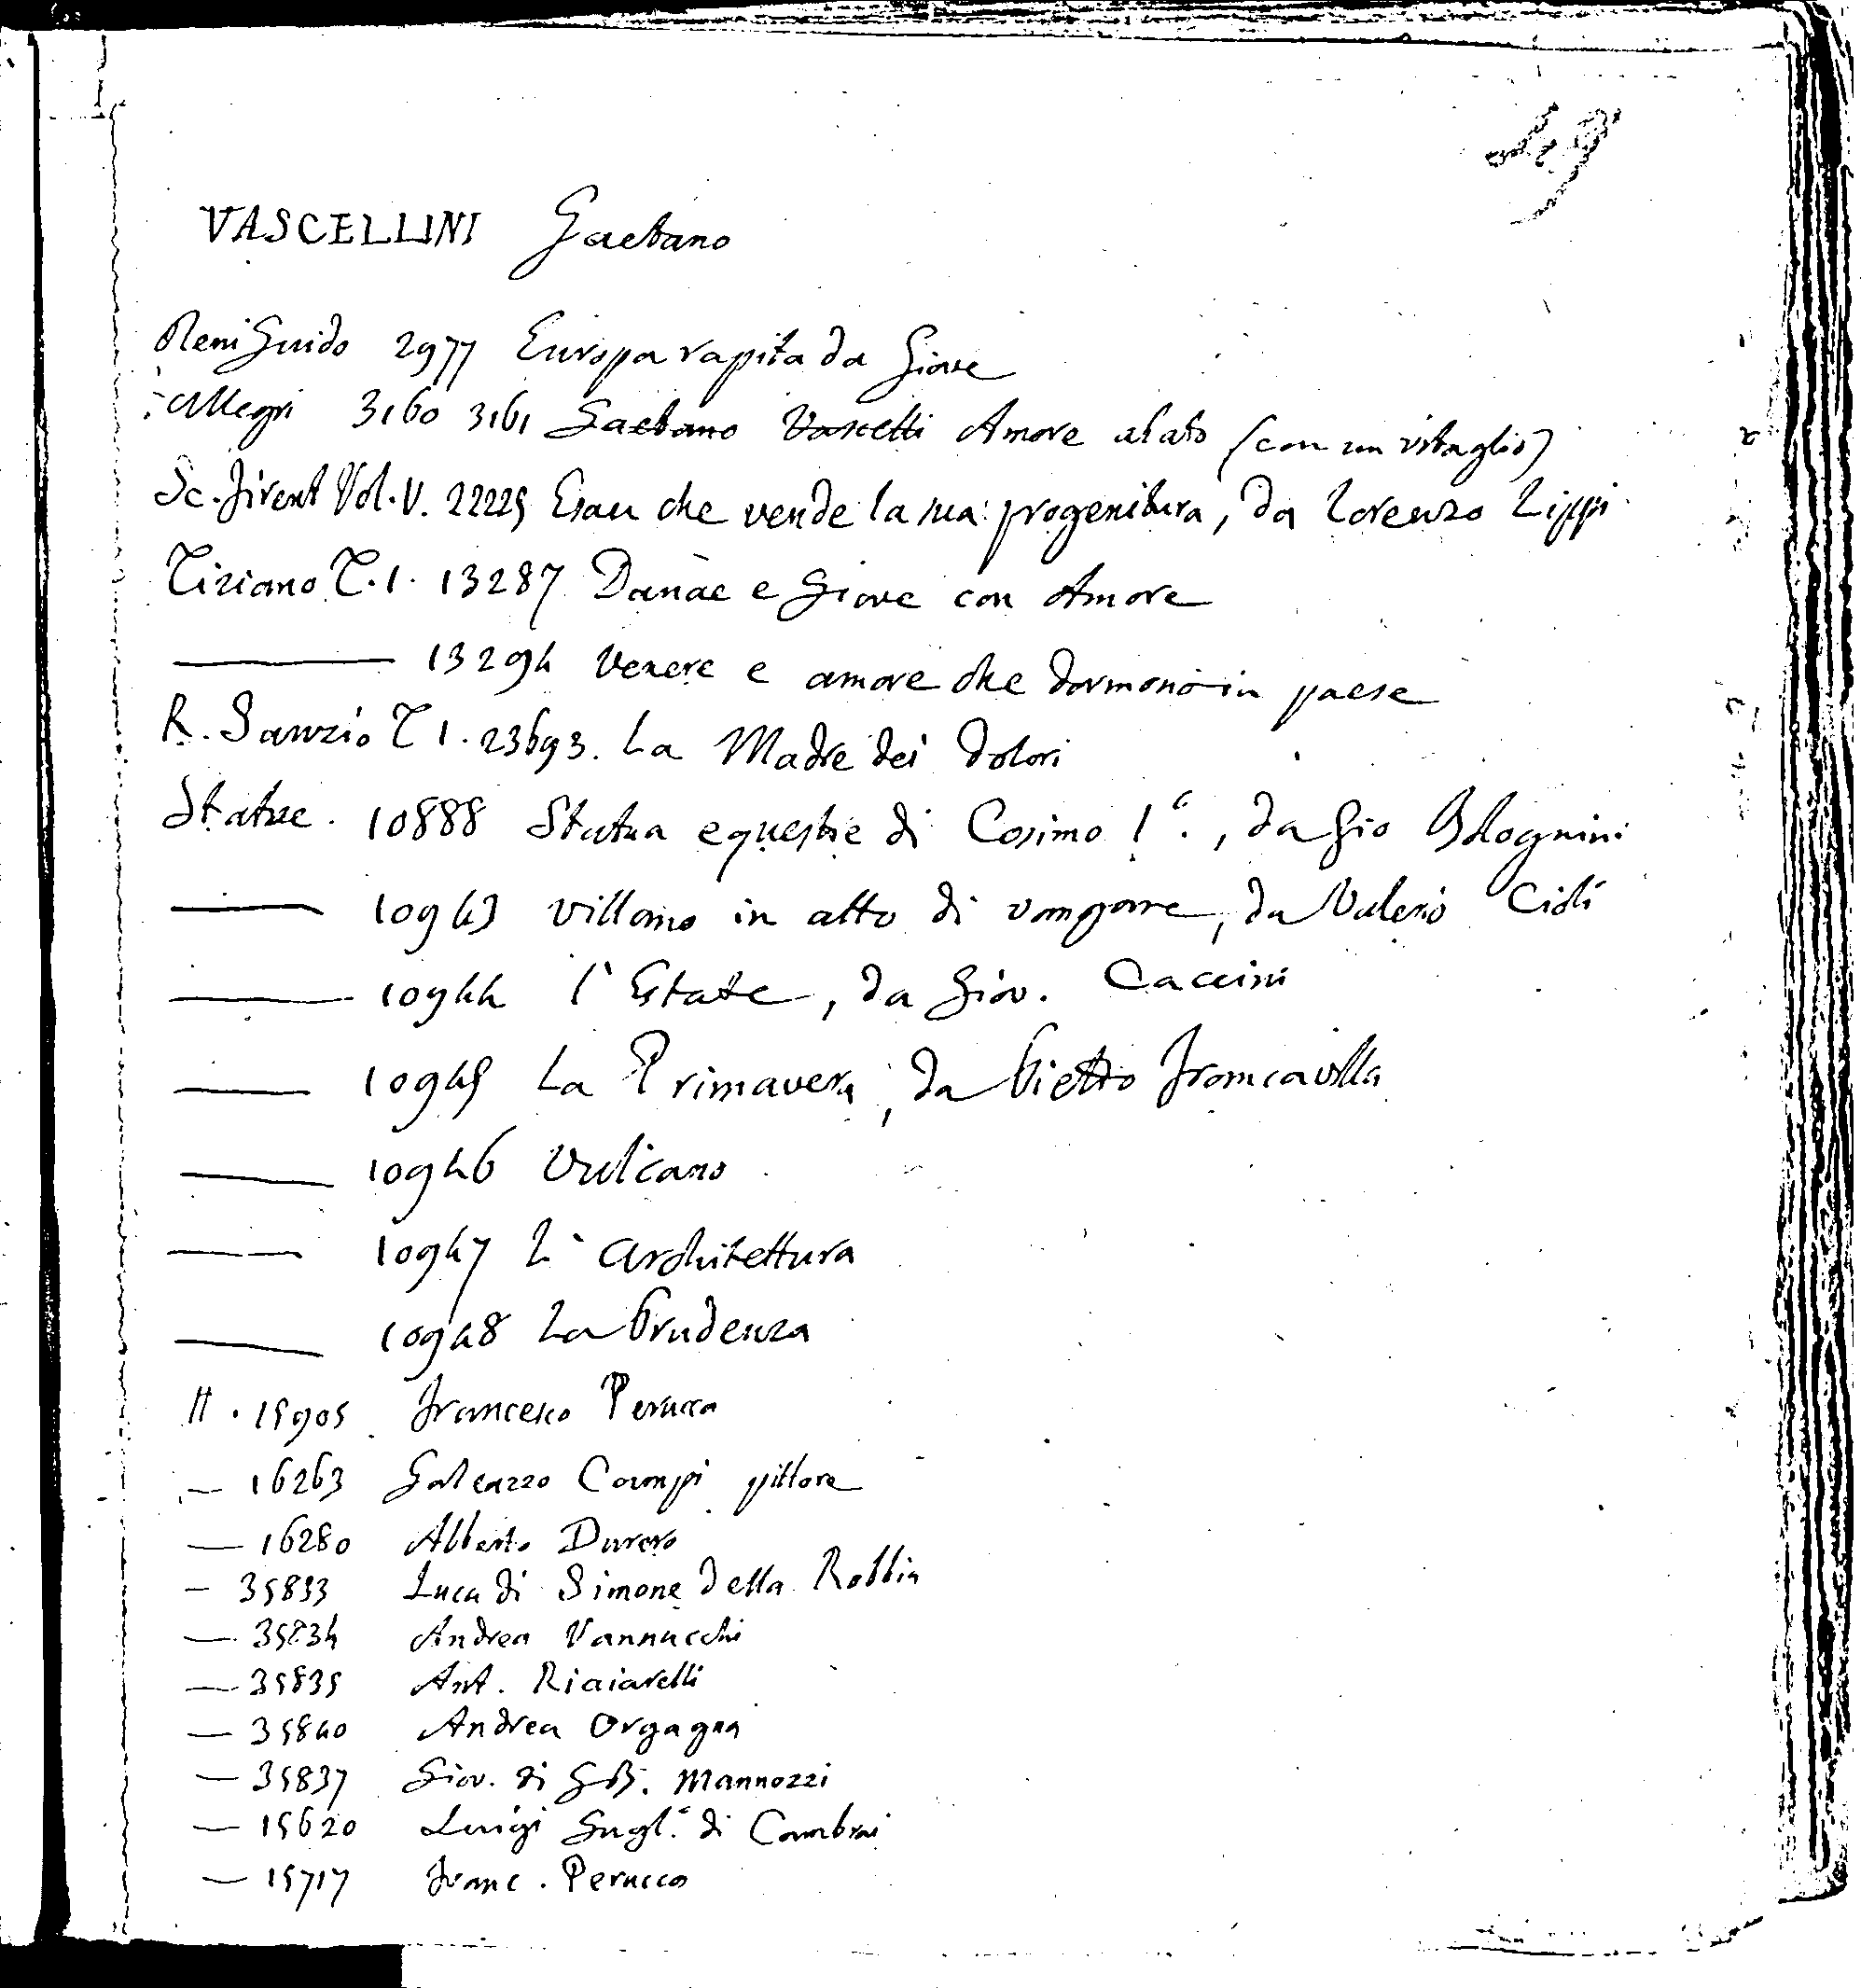 VASCELLINI Gaetano
Reni Guido 2977 Europa rapita da Giove
Allegri 3160 3161 Gaetano Vascelli Amore alato (con un ritaglio)
Sc. Firent Vol. V. 22225 Esau che vende la sua progenitura, da Lorenzo Lippi
Tiziano T. 1. 13287 Danae e Giove con Amore
—— 13294 Venere e amore che dormono in paese
R. Sanzio T 1. 23693. La Madre dei Dolori
Statue. 10888 Statua equestre di Cosimo 1°., da Gio Bolognini
—— 10943 villano in atto di vangare, da Valerio Cioli
—— 10944 l'Estate, da Giov. Caccini
—— 10945 La Primavera, da Pietro Francavilla
—— 10946 Vulcano
—— 10947 L'Architettura
—— 10948 La Prudenza
15905 Francesco Perucca
— 16263 Galeazzo Campi pittore
— 16280 Alberto Durero
— 35833 Luca di Simone della Robbia
— 35834 Andrea Vannucchi
— 35835 Ant. Riciarelli
— 35840 Andrea Orgagna
— 35837 Giov. di GB. Mannozzi
— 15620 Luigi Gugl.° di Cambrai
— 15717 Franc. Perucca